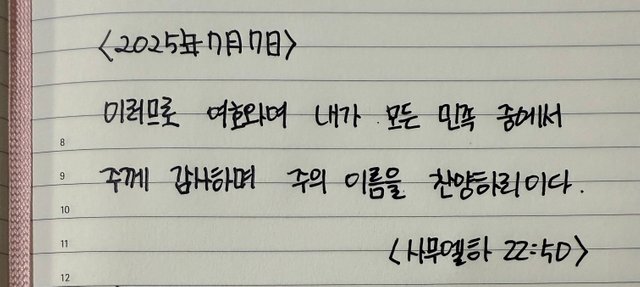 <2025年 7月 7日>
이러므로 여호와여 내가 모든 민족 중에서
8
9 주께 감사하며 주의 이름을 찬양하리이다.
10
11 <사무엘하 22:50>
12